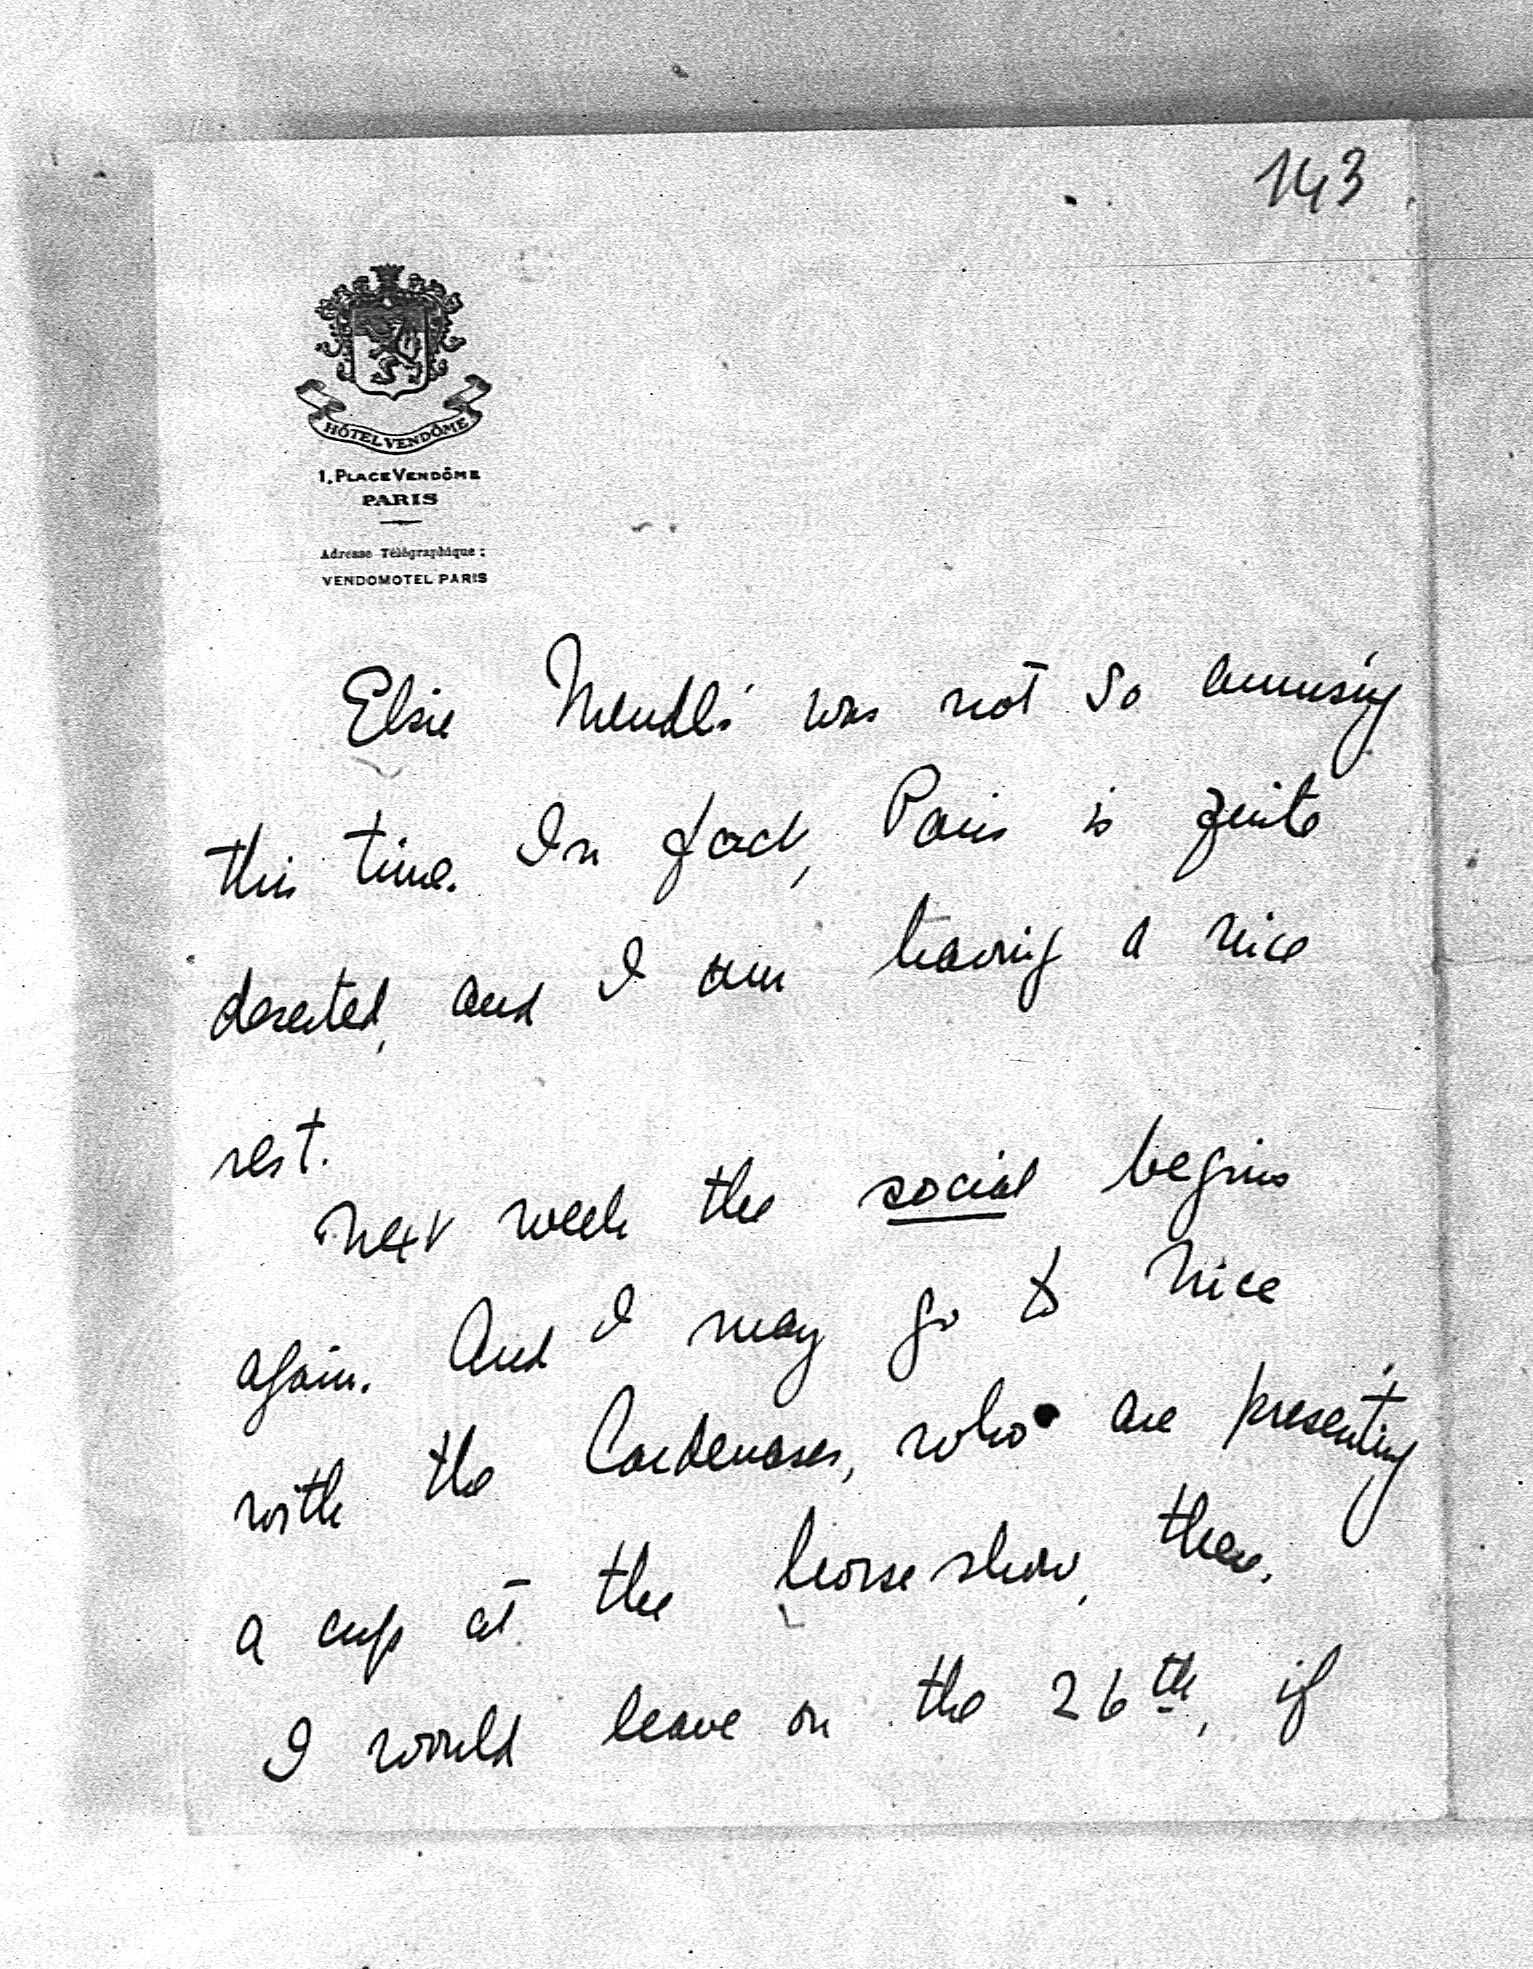 143
HÔTEL VENDÔME
1, PLACE VENDÔME
PARIS
Adresse Télégraphique :
VENDOMOTEL PARIS
Elsie Mendl's was not so amusing
this time. In fact, Paris is quite
deserted, and I am having a nice
rest.
Next week the social begins
again. And I may go to Nice
with the Cardenases, who are presenting
a cup at the horseshow, there.
I would leave on the 26th, if